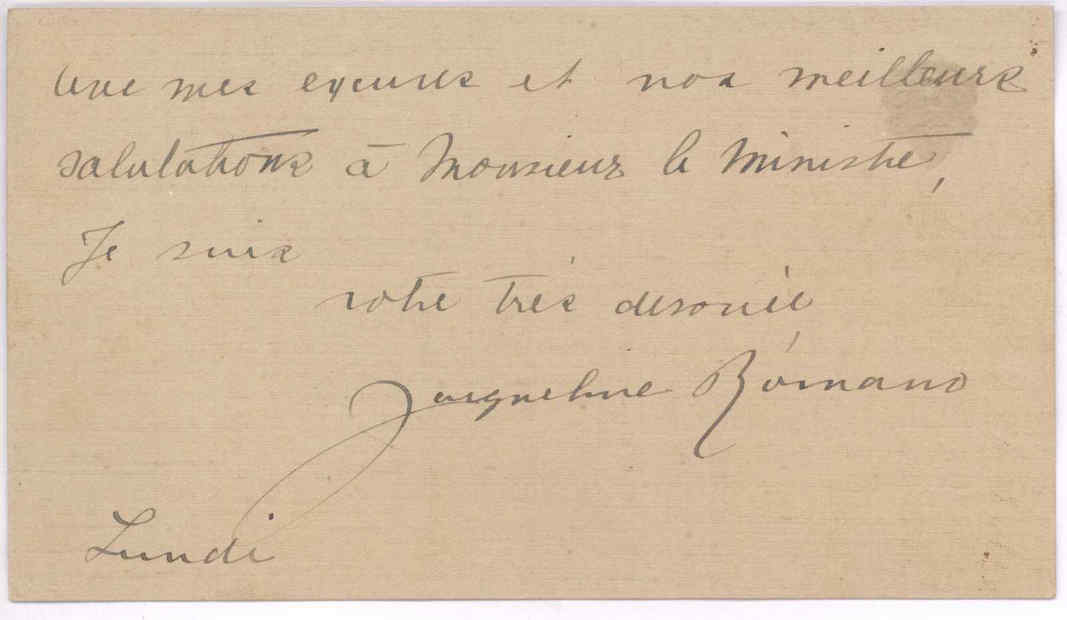 Avec mes excuses et nos meilleures
salutations à Monsieur le Ministre,
Je suis
votre très dévouée
Jacqueline Romano
Lundi